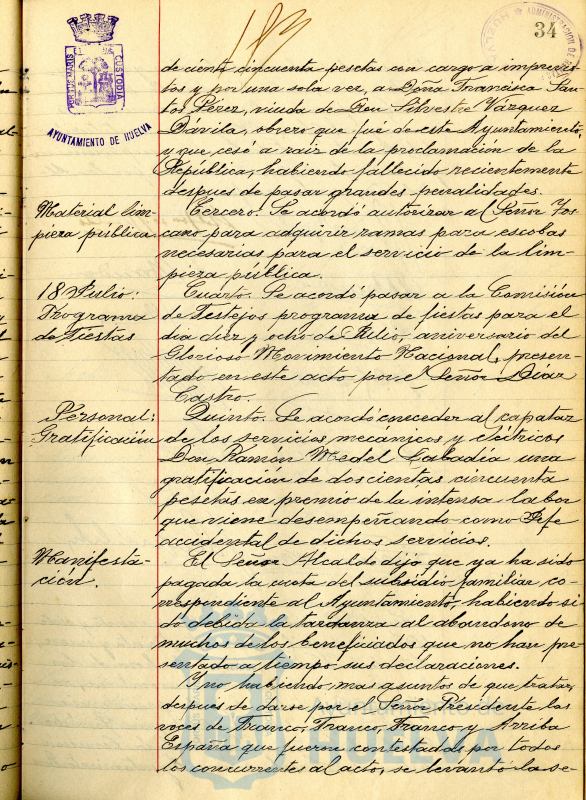 183
34
PORTUS MARIS
CUSTODIA
AYUNTAMIENTO DE HUELVA
ADMINISTRACION DE
de ciento cincuenta pesetas con cargo a imprevis-
tos y por una sola vez, a Doña Francisca San-
tos Pérez, viuda de Don Silvestre Vázquez
Dávila, obrero que fué de este Ayuntamiento,
y que cesó a raiz de la proclamación de la
República, habiendo fallecido recientemente
despues de pasar grandes penalidades.
Material lim-
pieza pública.
Tercero. Se acordó autorizar al Señor Tos-
cano para adquirir ramas para escobas
necesarias para el servicio de la lim-
pieza pública.
18 Julio:
Programa
de Fiestas
Cuarto. Se acordó pasar a la Comisión
de Festejos programa de fiestas para el
dia diez y ocho de Julio, aniversario del
Glorioso Movimiento Nacional, presen-
tado en este acto por el Señor Díaz
Castro.
Personal:
Gratificación
Quinto. Se acordó conceder al capataz
de los servicios mecanicos y eléctricos
Don Ramón Medel Labadía una
gratificación de doscientas cincuenta
pesetas en premio de la intensa labor
que viene desempeñando como Jefe
accidental de dichos servicios.
Manifesta-
ción.
El Señor Alcalde dijo que ya ha sido
pagada la cuota del subsidio familiar co-
rrespondiente al Ayuntamiento, habiendo si-
do debida la tardanza al abandono de
muchos de los beneficiados que no han pre-
sentado a tiempo sus declaraciones.
Y no habiendo mas asuntos de que tratar,
después de darse por el Señor Presidente las
voces de Franco, Franco, Franco y Arriba
España que fueron contestadas por todos
los concurrentes al acto, se levantó la se-
Ayuntamiento de
HUELVA